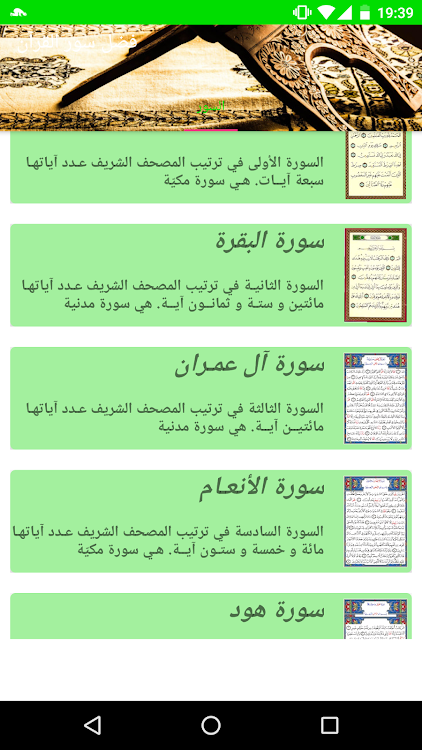 19:39
فضل سور القرآن
السورة الأولى في ترتيب المصحف الشريف عـدد آياتهـا
سبعة آيــات. هـي سورة مكيّة
سورة البقرة
السورة الثانيـة في ترتيب المصحف الشريف عـدد آياتهـا
مائتين و ستـة و ثمانــون آيــة. هي سورة مدنية
سورة آل عمـران
السورة الثالثة في ترتيب المصحف الشريف عـدد آياتهـا
مائتيــن آيــة. هي سورة مدنية
سورة الأنعـام
السورة السادسة في ترتيب المصحف الشريف عـدد آياتهـا
مائة و خمسة و ستـون آيــة. هـي سورة مكيّة
سورة هود